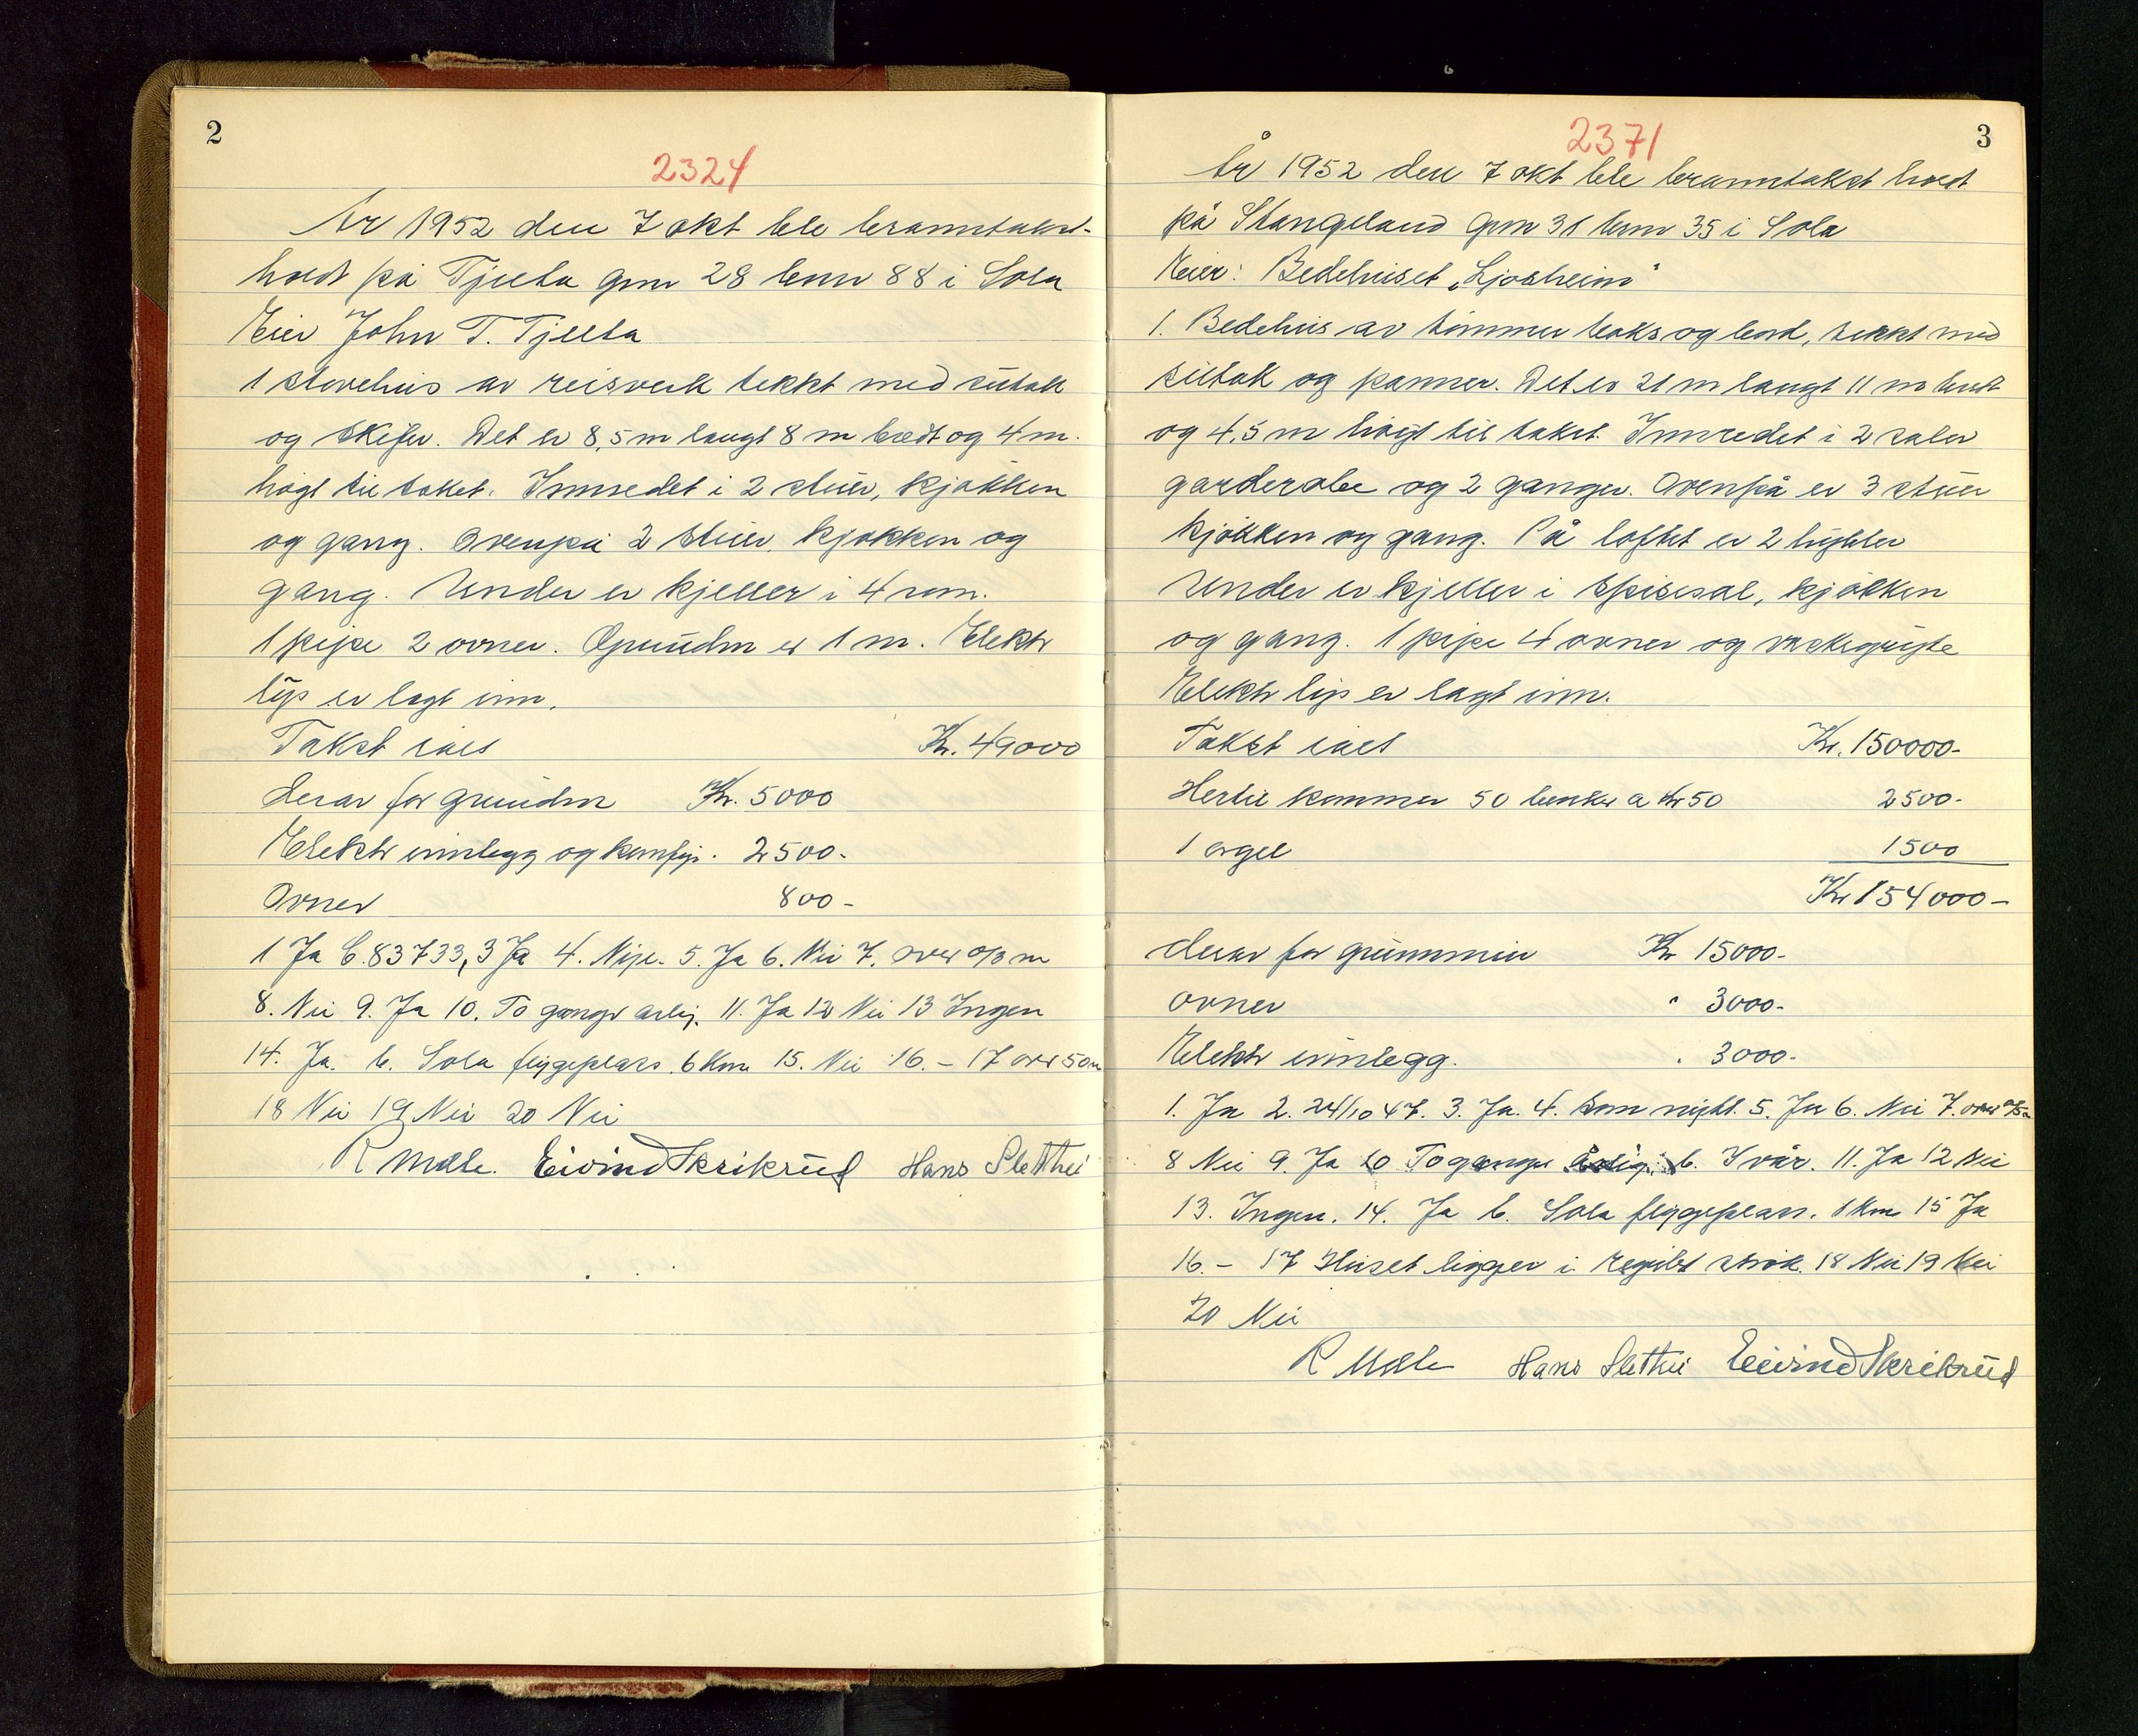 2
2324
År 1952 den 7 okt ble branntakst
holdt på Tjelta gnr 28 bnr 88 i Sola
Eier John T. Tjelta
1 stovehus av reisverk tekkt med sutak
og skifer. Det er 8,5 m langt 8 m bredt og 4 m.
högt til taket. Innredet i 2 stuer, kjökken
og gang. Ovenpå 2 stuer, kjökken og
gang. Under er kjeller i 4 rom.
1 pipe 2 ovner. Grundm er 1 m. Elektr
lys er lagt inn.
Takst ialt Kr. 49000
derav for grundm Kr. 5000
Elektr innlegg og komfyr. 2500-
Ovner 800-
1 Ja C.83733, 3 Ja 4. Mye. 5. Ja 6. Nei 7. over 8 m
8. Nei 9. Ja 10. To ganger årlig. 11. Ja 12 Nei 13 Ingen
14. Ja. b. Sola flygeplass. 6 km 15. Nei 16. - 17 over 50 m
18 Nei 19 Nei 20 Nei
R Mæle. Eivind Skrikrud Hans Sletthei
3
2371
År 1952 den 7 okt ble branntakst holdt
på Stangeland gnr 31 bnr 35 i Sola
Eier: Bedehuset „Ljosheim"
1. Bedehus av tömmer boks og bord, tekkt med
sutak og panner. Det er 21 m langt 11 m bredt
og 4,5 m högt til taket. Innredet i 2 saler
garderobe og 2 ganger. Ovenpå er 3 stuer
kjökken og gang. På loftet er 2 hybler
Under er kjeller i spisesal, kjökken
og gang. 1 pipe 4 ovner og vaskegryte
Elektr lys er lagt inn.
Takst ialt Kr. 150000-
Hertil kommer 50 benker a Kr 50 2500-
1 orgel 1500
Kr 154000-
derav for grunnmur Kr 15000-
ovner " 3000-
Elektr innlegg. " 3000-
1. Ja 2. 24/10 47. 3. Ja. 4. Som nybl. 5. Ja 6. Nei 7. over
8 Nei 9. Ja 10 To ganger årlig. b. I vår. 11. Ja 12 Nei
13. Ingen. 14. Ja b. Sola flygeplass. 1 km 15 Ja
16. - 17 Huset ligger i regulert strök. 18 Nei 19 Nei
20 Nei
R Mæle Hans Sletthei Eivind Skrikrud